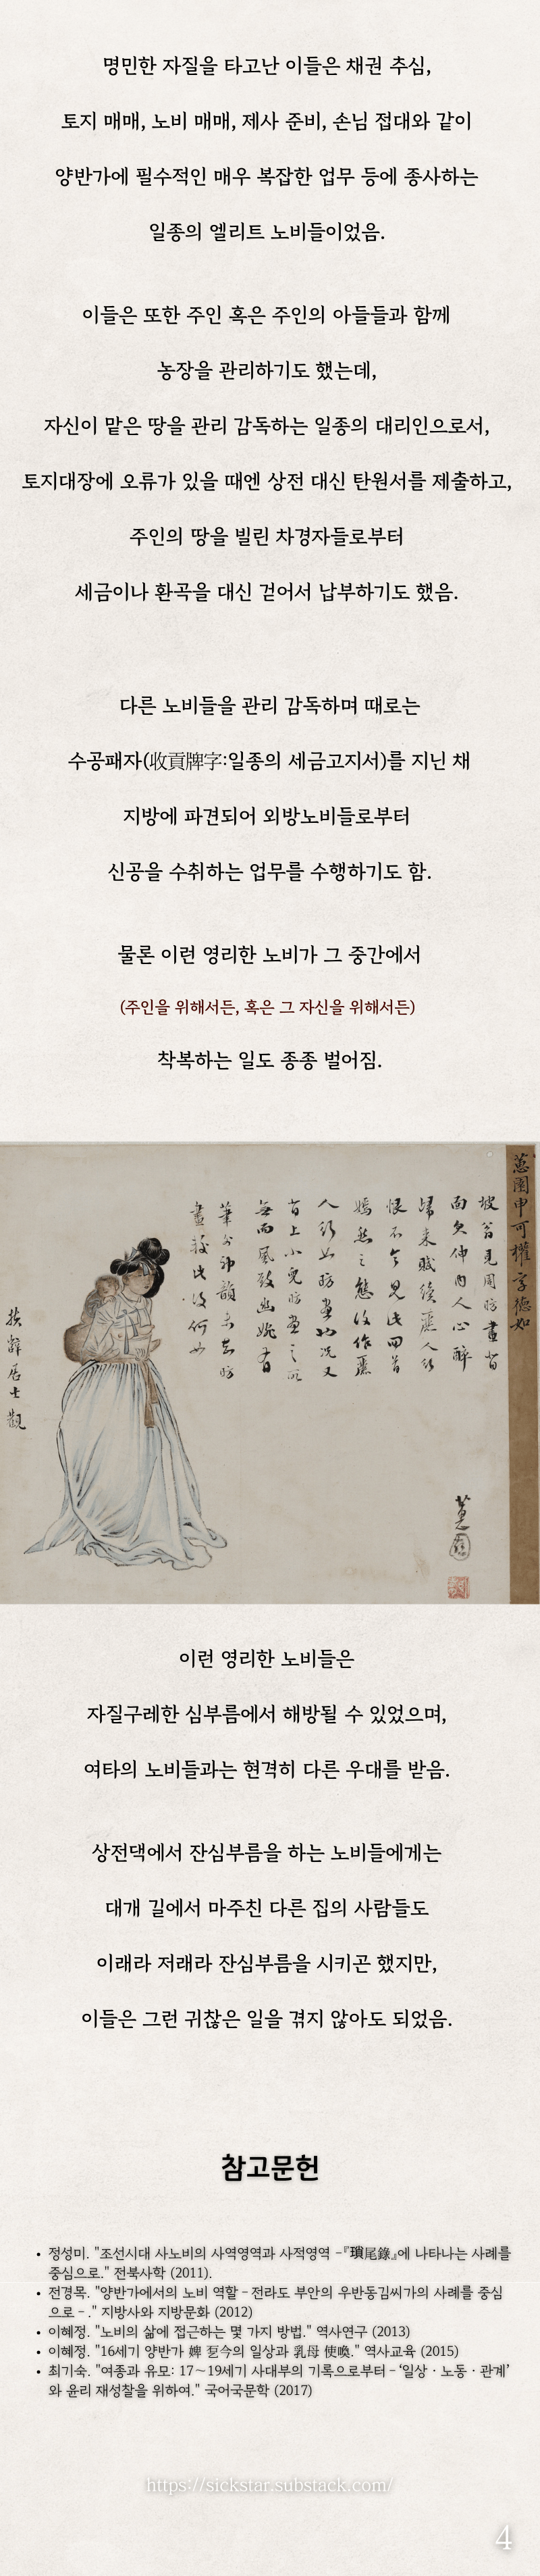 명민한 자질을 타고난 이들은 채권 추심,
토지 매매, 노비 매매, 제사 준비, 손님 접대와 같이
양반가에 필수적인 매우 복잡한 업무 등에 종사하는
일종의 엘리트 노비들이었음.
이들은 또한 주인 혹은 주인의 아들들과 함께
농장을 관리하기도 했는데,
자신이 맡은 땅을 관리 감독하는 일종의 대리인으로서,
토지대장에 오류가 있을 때엔 상전 대신 탄원서를 제출하고,
주인의 땅을 빌린 차경자들로부터
세금이나 환곡을 대신 걷어서 납부하기도 했음.
다른 노비들을 관리 감독하며 때로는
수공패자(收貢牌字:일종의 세금고지서)를 지닌 채
지방에 파견되어 외방노비들로부터
신공을 수취하는 업무를 수행하기도 함.
물론 이런 영리한 노비가 그 중간에서
(주인을 위해서든, 혹은 그 자신을 위해서든)
착복하는 일도 종종 벌어짐.
蕙園申可權字德如
坡翁見周昉畫背
面欠伸內人心醉
歸來賦續麗人行
恨不令見此回首
嫣然之態復作麗
人行如昉畫也況又
背上小兒昉畫之所
無而風致幽婉者
筆外神韻未知昉
畫較此復何如
蕙園
扶辭居士觀
이런 영리한 노비들은
자질구레한 심부름에서 해방될 수 있었으며,
여타의 노비들과는 현격히 다른 우대를 받음.
상전댁에서 잔심부름을 하는 노비들에게는
대개 길에서 마주친 다른 집의 사람들도
이래라 저래라 잔심부름을 시키곤 했지만,
이들은 그런 귀찮은 일을 겪지 않아도 되었음.
참고문헌
• 정성미. "조선시대 사노비의 사역영역과 사적영역 -『瑣尾錄』에 나타나는 사례를
중심으로." 전북사학 (2011).
• 전경목. "양반가에서의 노비 역할 - 전라도 부안의 우반동김씨가의 사례를 중심
으로 - ." 지방사와 지방문화 (2012)
• 이혜정. "노비의 삶에 접근하는 몇 가지 방법." 역사연구 (2013)
• 이혜정. "16세기 양반가 婢  㖙今의 일상과 乳母 使喚." 역사교육 (2015)
• 최기숙. "여종과 유모: 17~19세기 사대부의 기록으로부터 - '일상 · 노동 · 관계'
와 윤리 재성찰을 위하여." 국어국문학 (2017)
https://sickstar.substack.com/
4